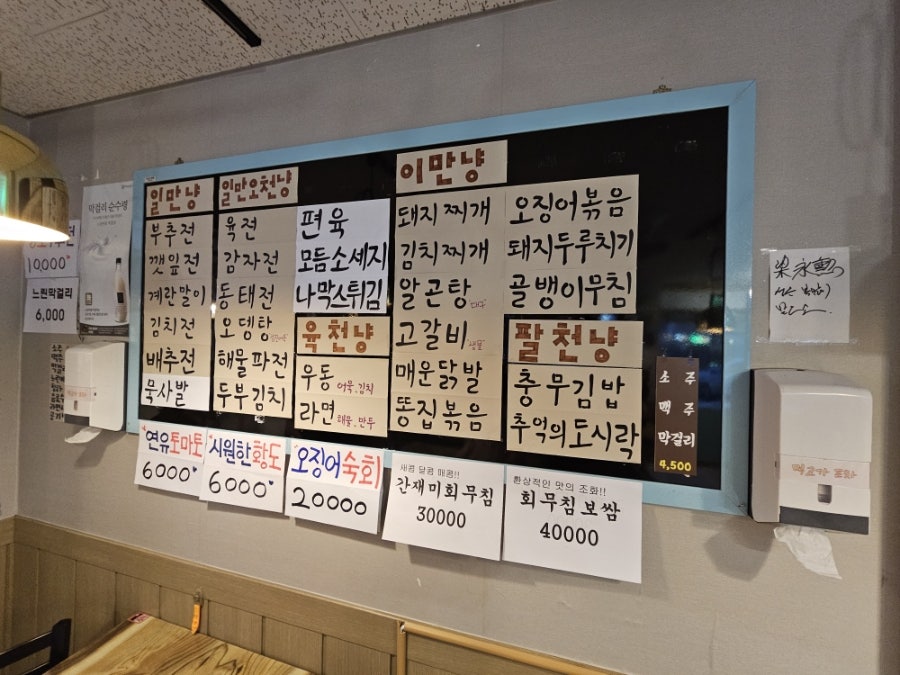 10,000
느린막걸리
6,000
막걸리 순수령
일만냥
부추전
깻잎전
계란말이
김치전
배추전
묵사발
일만오천냥
육전
감자전
동태전
오뎅탕
해물파전
두부김치
편육
모듬소세지
나막스튀김
육천냥
우동 어묵.김치
라면 해물.만두
이만냥
돼지찌개
김치찌개
알곤탕
고갈비
매운닭발
똥집볶음
오징어볶음
돼지두루치기
골뱅이무침
팔천냥
충무김밥
추억의도시락
소주
맥주
막걸리
4,500
연유토마토
6000
시원한황도
6000
오징어숙회
20000
새콤 달콤 매콤!!
간재미회무침
30000
환상적인 맛의 조화!!
회무침보쌈
40000